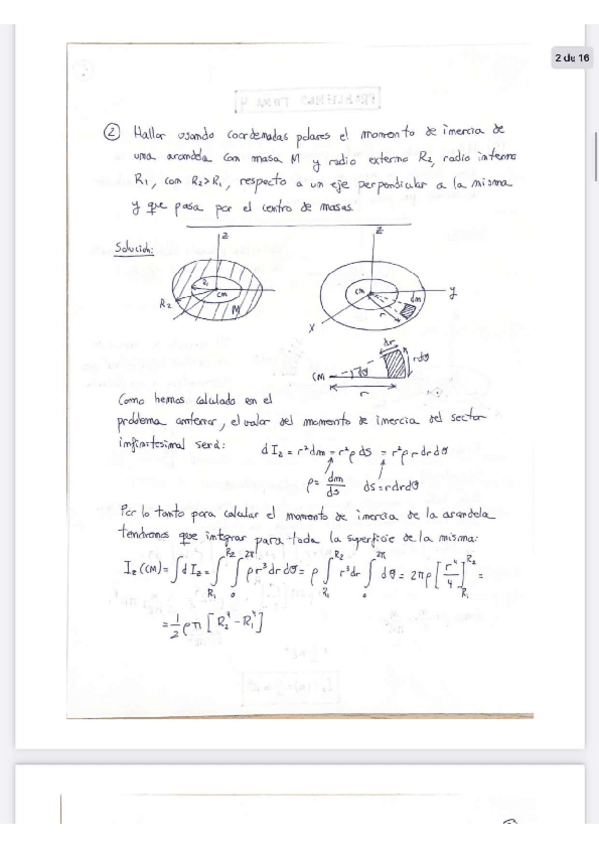 2 de 16
② Hallar usando coordenadas polares el momento de inercia de
una arandela con masa M y radio externo R₂, radio interno
R₁, con R₂>R₁, respecto a un eje perpendicular a la misma
y que pasa por el centro de masas.
Solución:
z
R₁
cm
R₂
M
z
cm
dm
y
r
x
dr
rdθ
CM
dθ
r
Como hemos calculado en el
problema anterior, el valor del momento de inercia del sector
infinitesimal será: dI₂ = r²dm = r²ρds = r²ρrdrdθ
ρ= dm/ds ds=rdrdθ
Por lo tanto para calcular el momento de inercia de la arandela
tendremos que integrar para toda la superficie de la misma:
I_z(CM)=∫dI_z=∫_{R₁}^{R₂}∫_0^{2π}ρr³drdθ=ρ∫_{R₁}^{R₂}r³dr∫_0^{2π}dθ=2πρ[r⁴/4]_{R₁}^{R₂}=
=1/2 ρπ[R₂⁴-R₁⁴]